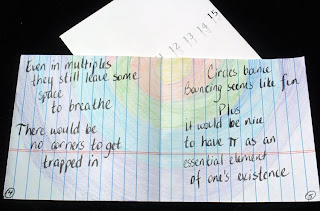 12 13 14 15
Even in multiples
they still leave some
space
to breathe
There would be
no corners to get
trapped in
4
Circles bounce
bouncing seems like fun
Plus
It would be nice
to have π as an
essential element
of one's existence
5